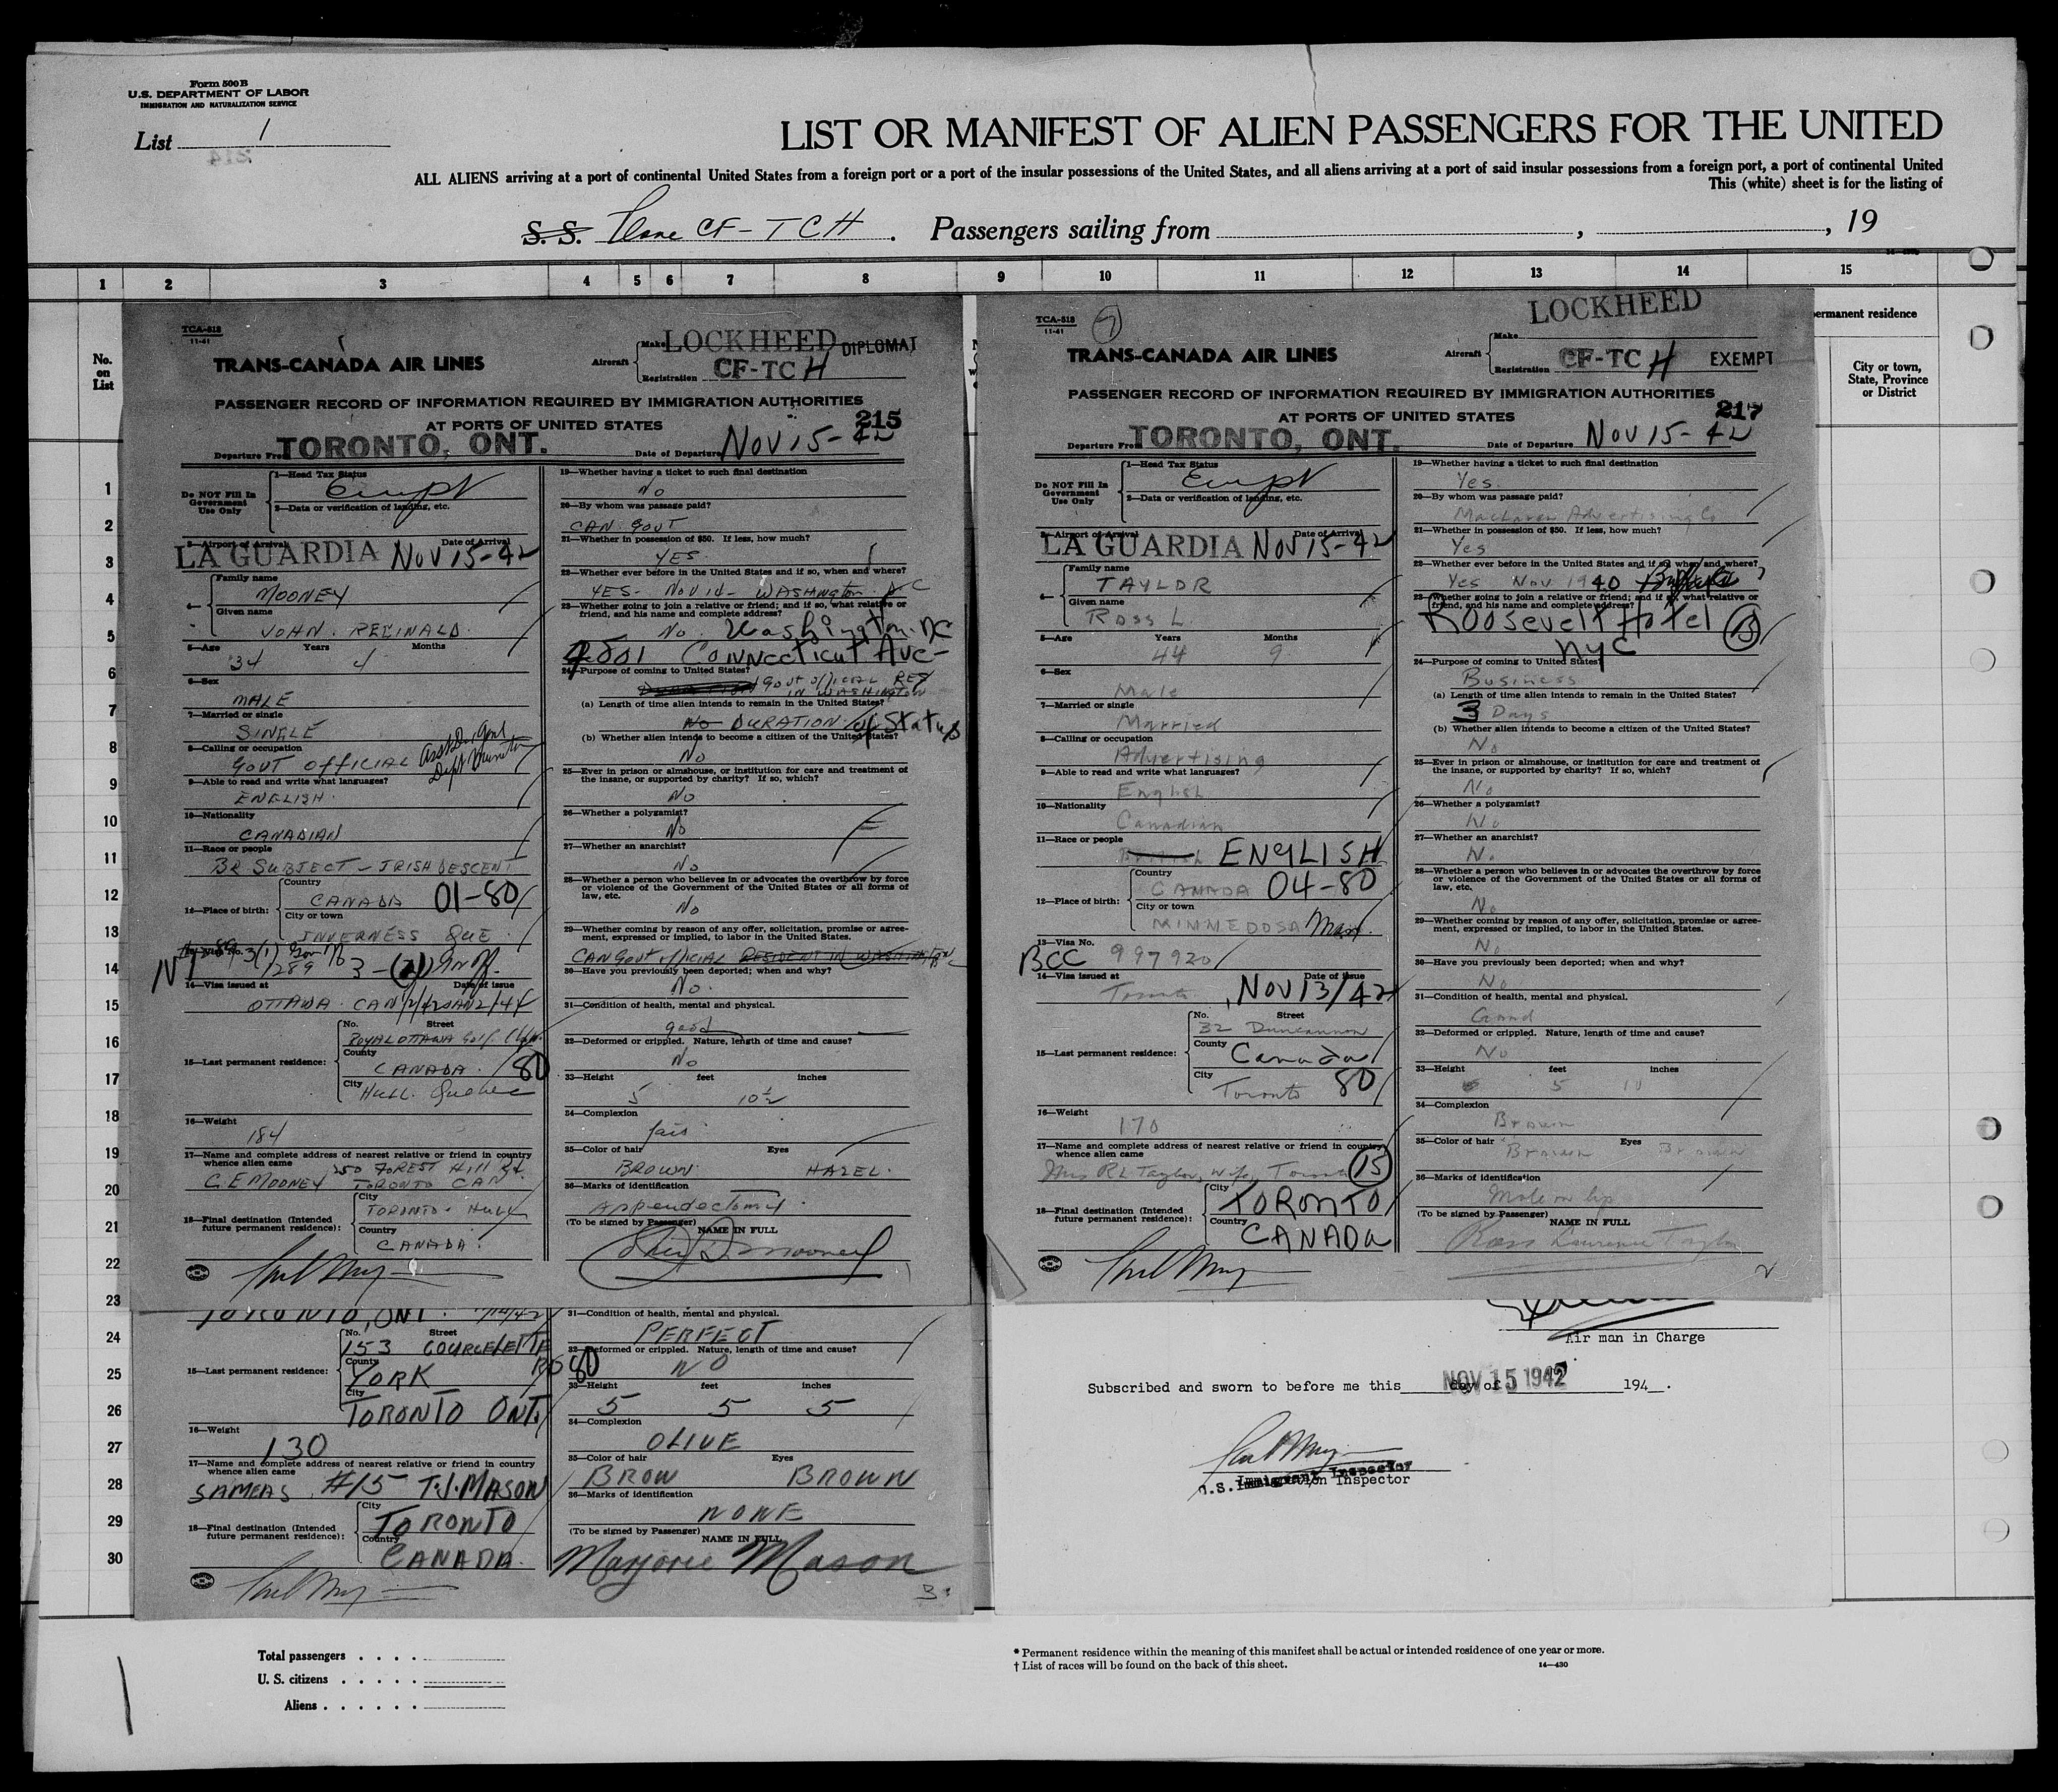 Form 500 B
U.S. DEPARTMENT OF LABOR
IMMIGRATION AND NATURALIZATION SERVICE
List 1
LIST OR MANIFEST OF ALIEN PASSENGERS FOR THE UNITED
ALL ALIENS arriving at a port of continental United States from a foreign port or a port of the insular possessions of the United States, and all aliens arriving at a port of said insular possessions from a foreign port, a port of continental United
This (white) sheet is for the listing of
S. S. Plane CF-TCH. Passengers sailing from , , 19
1 2 3 4 5 6 7 8 9 10 11 12 13 14 15
No. on List
permanent residence
City or town, State, Province or District
1
2
3
4
5
6
7
8
9
10
11
12
13
14
15
16
17
18
19
20
21
22
23
24
25
26
27
28
29
30
TCA-518
11-41
TRANS-CANADA AIR LINES
Aircraft Make LOCKHEED DIPLOMAT
Registration CF-TCH
PASSENGER RECORD OF INFORMATION REQUIRED BY IMMIGRATION AUTHORITIES
AT PORTS OF UNITED STATES 215
Departure From TORONTO, ONT. Date of Departure NOV 15-42
Do NOT Fill In Government Use Only
1—Head Tax Status
2—Data or verification of landing, etc.
3—Airport of Arrival Date of Arrival
LA GUARDIA NOV 15-42
4— Family name
MOONEY
Given name
JOHN. REGINALD.
5—Age Years Months
34 4
6—Sex
MALE
7—Married or single
SINGLE
8—Calling or occupation
GOVT OFFICIAL
9—Able to read and write what languages?
ENGLISH.
10—Nationality
CANADIAN
11—Race or people
BR SUBJECT - IRISH DESCENT
12—Place of birth:
Country
CANADA 01-80
City or town
INVERNESS QUE.
14—Visa issued at Date of issue
OTTAWA. CAN
15—Last permanent residence:
No. Street
ROYAL OTTAWA Golf Club
County
CANADA. 80
City
Hull. Quebec
16—Weight
184
17—Name and complete address of nearest relative or friend in country whence alien came
250 FOREST Hill Rd.
C.E MOONEY TORONTO CAN.
18—Final destination (Intended future permanent residence):
City
TORONTO - HULL
Country
CANADA.
19—Whether having a ticket to such final destination
No
20—By whom was passage paid?
CAN. GOVT
21—Whether in possession of $50. If less, how much?
YES.
22—Whether ever before in the United States and if so, when and where?
YES- NOV 14- WASHINGTON D C
23—Whether going to join a relative or friend; and if so, what relative or friend, and his name and complete address?
No Washington. DC
CONNECTICUT AVE-
24—Purpose of coming to United States?
GOVT OFFICIAL RES
IN WASHINGTON
(a) Length of time alien intends to remain in the United States?
No DURATION of Status
(b) Whether alien intends to become a citizen of the United States?
No
25—Ever in prison or almshouse, or institution for care and treatment of the insane, or supported by charity? If so, which?
No
26—Whether a polygamist?
No
27—Whether an anarchist?
No
28—Whether a person who believes in or advocates the overthrow by force or violence of the Government of the United States or all forms of law, etc.
No
29—Whether coming by reason of any offer, solicitation, promise or agreement, expressed or implied, to labor in the United States.
CAN GOVT official RESIDENT IN WASHINGTON
30—Have you previously been deported; when and why?
No.
31—Condition of health, mental and physical.
good
32—Deformed or crippled. Nature, length of time and cause?
No
33—Height feet inches
5 10½
34—Complexion
fair
35—Color of hair Eyes
BROWN. HAZEL.
36—Marks of identification
Appendectomy.
(To be signed by Passenger) NAME IN FULL
TORONTO, ONT.
15—Last permanent residence:
No. Street
153 COURCELETTE
County RD 80
YORK
City
TORONTO ONT.
16—Weight
130
17—Name and complete address of nearest relative or friend in country whence alien came
SAME AS #15 T.J. MASON
18—Final destination (Intended future permanent residence):
City
TORONTO
Country
CANADA.
31—Condition of health, mental and physical.
PERFECT
32—Deformed or crippled. Nature, length of time and cause?
NO
33—Height feet inches
5 5 5
34—Complexion
OLIVE
35—Color of hair Eyes
BROW BROWN
36—Marks of identification
NONE
(To be signed by Passenger) NAME IN FULL
Marjorie Mason
3
TCA-518
11-41
7
TRANS-CANADA AIR LINES
LOCKHEED
Aircraft Make
Registration CF-TCH EXEMPT
PASSENGER RECORD OF INFORMATION REQUIRED BY IMMIGRATION AUTHORITIES
AT PORTS OF UNITED STATES 217
Departure From TORONTO, ONT. Date of Departure NOV 15-42
Do NOT Fill In Government Use Only
1—Head Tax Status
2—Data or verification of landing, etc.
3—Airport of Arrival Date of Arrival
LA GUARDIA NOV 15-42
4— Family name
TAYLOR
Given name
ROSS L.
5—Age Years Months
44 9
6—Sex
Male
7—Married or single
Married
8—Calling or occupation
Advertising
9—Able to read and write what languages?
English
10—Nationality
Canadian
11—Race or people
British ENGLISH
12—Place of birth:
Country
CANADA 04-80
City or town
MINNEDOSA Man.
13—Visa No.
BCC 997920
14—Visa issued at Date of issue
Toronto, NOV 13/42
15—Last permanent residence:
No. Street
32 Duncannon
County
Canada
City
Toronto 80
16—Weight
170
17—Name and complete address of nearest relative or friend in country whence alien came
Mrs RL Taylor, wife, Toronto 15
18—Final destination (Intended future permanent residence):
City
TORONTO
Country
CANADA
19—Whether having a ticket to such final destination
Yes.
20—By whom was passage paid?
MacLaren Advertising Co
21—Whether in possession of $50. If less, how much?
Yes
22—Whether ever before in the United States and if so, when and where?
Yes Nov 1940 Buffalo
23—Whether going to join a relative or friend; and if so, what relative or friend, and his name and complete address?
Roosevelt Hotel
NYC
24—Purpose of coming to United States?
Business
(a) Length of time alien intends to remain in the United States?
3 Days
(b) Whether alien intends to become a citizen of the United States?
No
25—Ever in prison or almshouse, or institution for care and treatment of the insane, or supported by charity? If so, which?
No
26—Whether a polygamist?
No
27—Whether an anarchist?
No
28—Whether a person who believes in or advocates the overthrow by force or violence of the Government of the United States or all forms of law, etc.
No
29—Whether coming by reason of any offer, solicitation, promise or agreement, expressed or implied, to labor in the United States.
No
30—Have you previously been deported; when and why?
No
31—Condition of health, mental and physical.
Good
32—Deformed or crippled. Nature, length of time and cause?
No
33—Height feet inches
5 10
34—Complexion
Brown
35—Color of hair Eyes
Brown Brown
36—Marks of identification
Mole on lip
(To be signed by Passenger) NAME IN FULL
Ross Lawrence Taylor
2
Air man in Charge
Subscribed and sworn to before me this day of NOV 15 1942 194 .
U.S. Immigration Inspector
Immigrant Inspector
Total passengers . . . .
U. S. citizens . . . . .
Aliens . . . . . .
* Permanent residence within the meaning of this manifest shall be actual or intended residence of one year or more.
† List of races will be found on the back of this sheet. 14—430